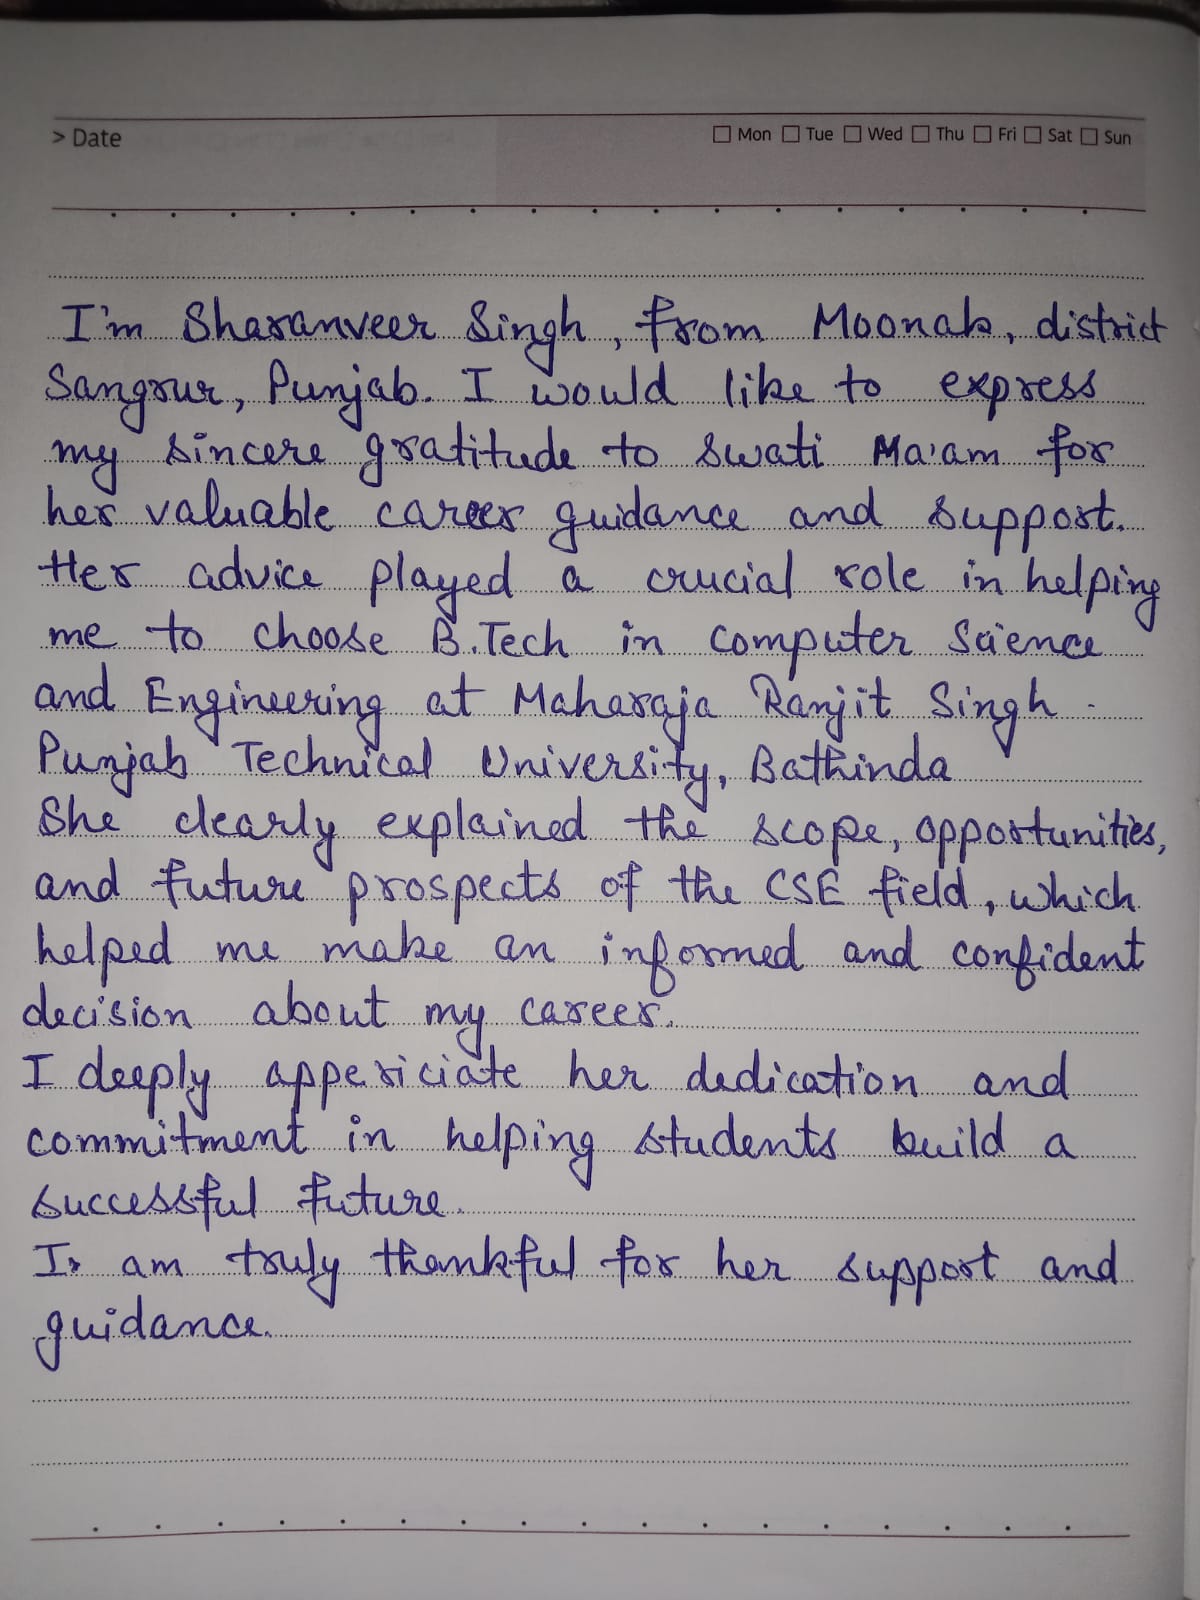 > Date
Mon Tue Wed Thu Fri Sat Sun
I'm Sharanveer Singh, from Moonak, district
Sangrur, Punjab. I would like to express
my sincere gratitude to Swati Ma'am for
her valuable career guidance and support.
Her advice played a crucial role in helping
me to choose B.Tech in Computer Science
and Engineering at Maharaja Ranjit Singh
Punjab Technical University, Bathinda
She clearly explained the scope, opportunities,
and future prospects of the CSE field, which
helped me make an informed and confident
decision about my career.
I deeply appericiate her dedication and
commitment in helping students build a
successful future.
I am truly thankful for her support and
guidance.